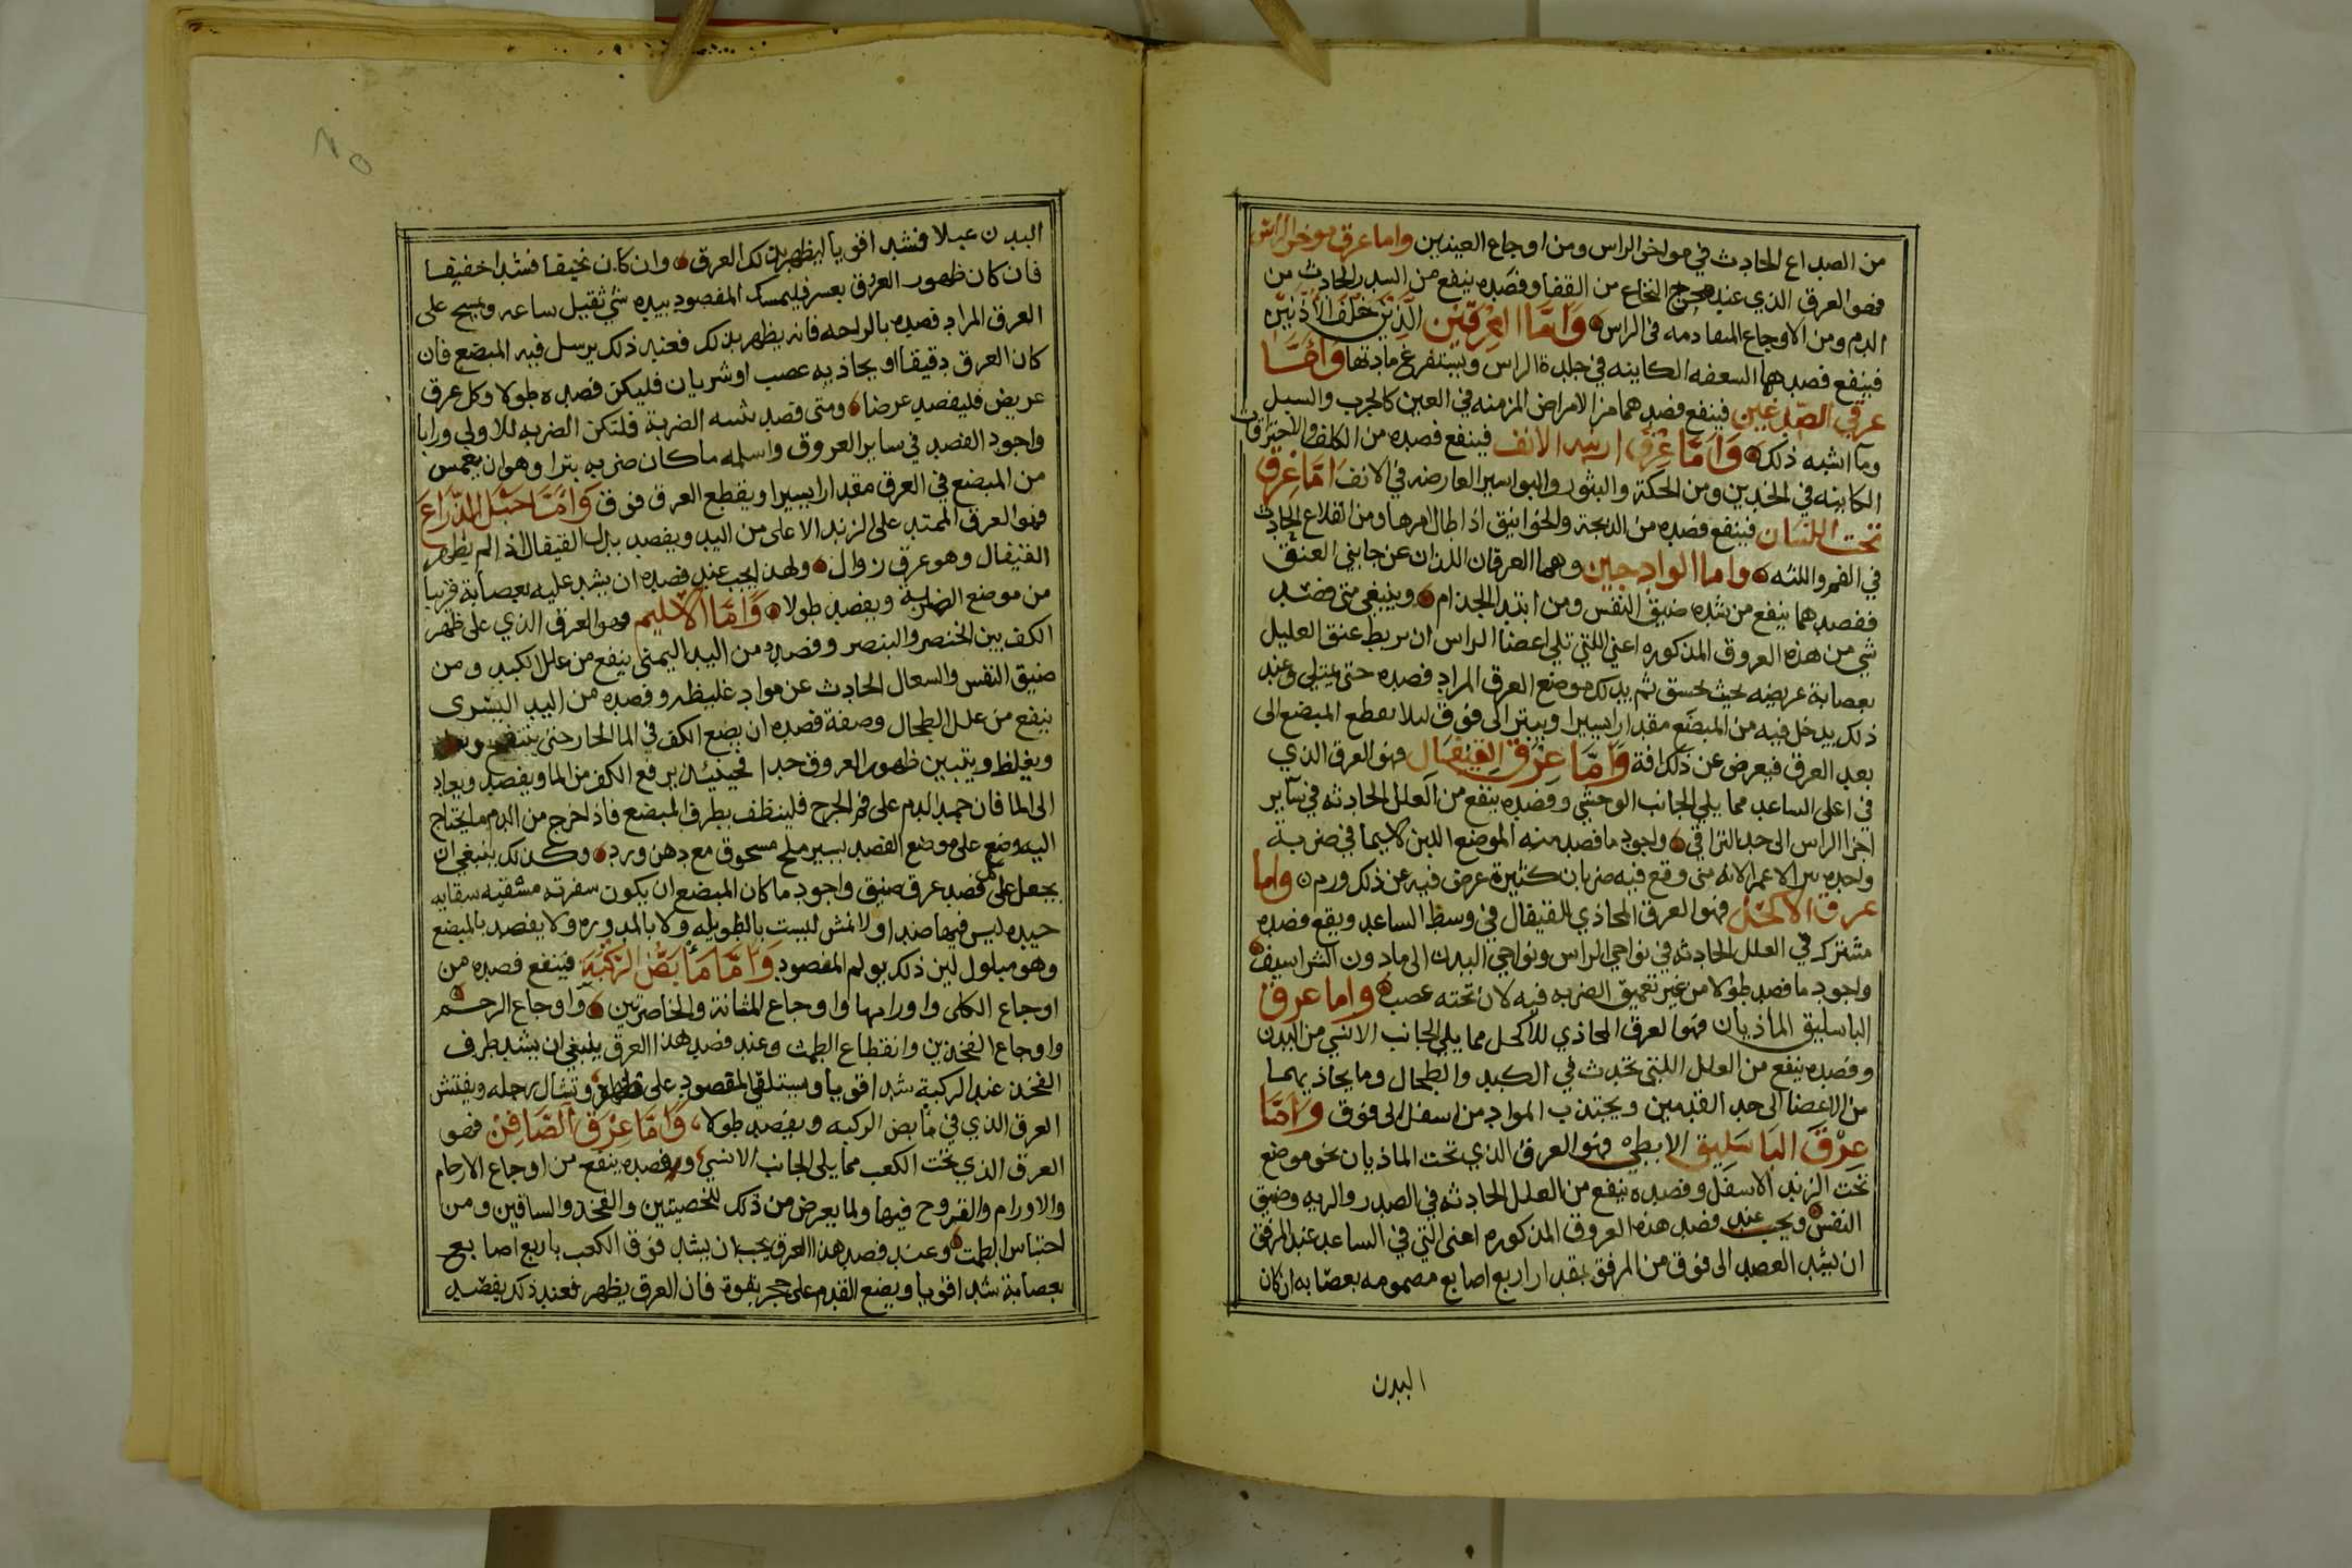 من الصداع الحادث في مواخر الراس ومن اوجاع العينين واما عرق موخر الراس
فهو العرق الذي عند مخرج النخاع من القفا وفصده ينفع من السدر الحادث من
الدم ومن الاوجاع المتقادمه في الراس واما العرقين الذين خلف الاذنين
فينفع فصدهما السعفه الكاينه في جلدة الراس ويستفرغ مادتها واما
عرقي الصدغين فينفع فصدهما من الامراض المزمنه في العين كالجرب والسبل
وما اشبه ذلك واما عرق ارنبه الانف فينفع فصده من الكلف والاحتراقات
الكاينه في الخدين ومن الحكة والبثور والبواسير العارضه في الانف اما عرق
تحت اللسان فينفع فصده من الذبحة والخوانيق اذا طال امرها ومن القلاع الحادث
في الفم واللثه واما الوادجين وهما العرقان اللذان عن جانبي العنق
ففصدهما ينفع من شده ضيق النفس ومن ابتدا الجذام وينبغي متى فصد
شي من هذه العروق المذكوره اعني اللتي تلي اعضا الراس ان يربط عنق العليل
بعصابة عريضه بحيث يختنق ثم يدلك موضع العرق المراد فصده حتى يمتلي وعند
ذلك يدخل فيه من المبضع مقدارا يسيرا ويبتر الى فوق ليلا يقطع المبضع الى
بعد العرق فيعرض عن ذلك افة واما عرق القيفال فهو العرق الذي
في اعلى الساعد مما يلي الجانب الوحشي وفصده ينفع من العلل الحادثه في ساير
اجزا الراس الى حد التراقي واجود ما فصد منه الموضع اللين لاسيما في ضربة
واحده لانه متى وقع فيه ضربات كثيرة عرض فيه عن ذلك ورم واما
عرق الاكحل فهو العرق المحاذي للقيفال في وسط الساعد ويقع فصده
مشترك في العلل الحادثه في نواحي الراس ونواحي البدن الى مادون الشراسيف
واجود ما فصد طولا من غير تعميق الضربه فيه لان تحته عصب واما عرق
الباسليق الماذيان فهو العرق المحاذي للاكحل مما يلي الجانب الانسي من البدن
وفصده ينفع من العلل اللتي تحدث في الكبد والطحال وما يحاذيهما
من الاعضا الى حد القدمين ويجتذب المواد من اسفل الى فوق واما
عرق الباسليق الابطي فهو العرق الذي تحت الماذيان نحو موضع
تحت الزند الاسفل وفصده ينفع من العلل الحادثه في الصدر والريه وضيق
النفس ويجب عند فصد هذه العروق المذكوره اعنى التي في الساعد عند المرفق
ان يشد العضد الى فوق من المرفق بمقدار اربع اصابع مضمومه بعصابه ان كان
البدن
البدن عبلا فشد اقويا ليظهر بذلك العرق وان كان نحيفا فشدا خفيفا
فان كان ظهور العرق بعسر فليمسك المفصود بيده شي ثقيل ساعه ويمسح على
العرق المراد فصده بالراحه فانه يظهر بذلك فعند ذلك يرسل فيه المبضع فان
كان العرق دقيقا او يحاذيه عصب او شريان فليكن فصده طولا وكل عرق
عريض فليفصد عرضا ومتى قصد تثنية الضربة فلتكن الضربه للاولى ورابا
واجود الفصد في ساير العروق واسلمه ماكان ضربه بترا وهو ان يغمس
من المبضع في العرق مقدارا يسيرا ويقطع العرق فوق واما حبل الذراع
فهو العرق الممتد على الزند الاعلى من اليد ويفصد بدل القيفال اذا لم يظهر
القيفال وهو عرق زوال ولهذا يجب عند فصده ان يشد عليه بعصابة قريبا
من موضع الضربة ويفصد طولا واما الاسليم فهو العرق الذي على ظهر
الكف بين الخنصر والبنصر وفصده من اليد اليمنى ينفع من علل الكبد ومن
ضيق النفس والسعال الحادث عن مواد غليظه وفصده من اليد اليسرى
ينفع من علل الطحال وصفة فصده ان يضع الكف في الما الحار حتى ينتفخ
ويغلظ ويتبين ظهور العروق جدا فحينئذ يرفع الكف من الما ويفصد ويعاد
الى الما فان جمد الدم على فم الجرح فلينظف بطرف المبضع فاذا خرج من الدم ما يحتاج
اليه وضع على موضع الفصد يسير ملح مسحوق مع دهن ورد وكذلك ينبغي ان
يجعل على كل فصد عرق ضيق واجود ما كان المبضع ان يكون سفرته مشقيه سقايه
جيده ليس فيها صدا ولا نمش ليست بالطويله ولا بالمدوره ولا يفصد بالمبضع
وهو مبلول لين ذلك يولم المفصود واما مابض الركبة فينفع فصده من
اوجاع الكلى واورامها واوجاع المثانة والخاصرتين واوجاع الرحم
واوجاع الفخذين وانقطاع الطمث وعند فصد هذا العرق ينبغي ان يشد طرف
الفخذ عند الركبة شدا قويا ويستلقي المقصود على ظهره وتشال رجله ويفتش
العرق الذي في مابض الركبه ويفصد طولا واما عرق الصافن فهو
العرق الذي تحت الكعب مما يلى الجانب الانسي وفصده ينفع من اوجاع الارحام
والاورام والقروح فيها ولما يعرض من ذلك للخصيتين والفخذ والساقين ومن
احتباس الطمث وعند فصد هذا العرق يجب ان يشد فوق الكعب باربع اصابع
بعصابة شدا قويا ويضع القدم على حجر بقوة فان العرق يظهر فعند ذلك يفصد